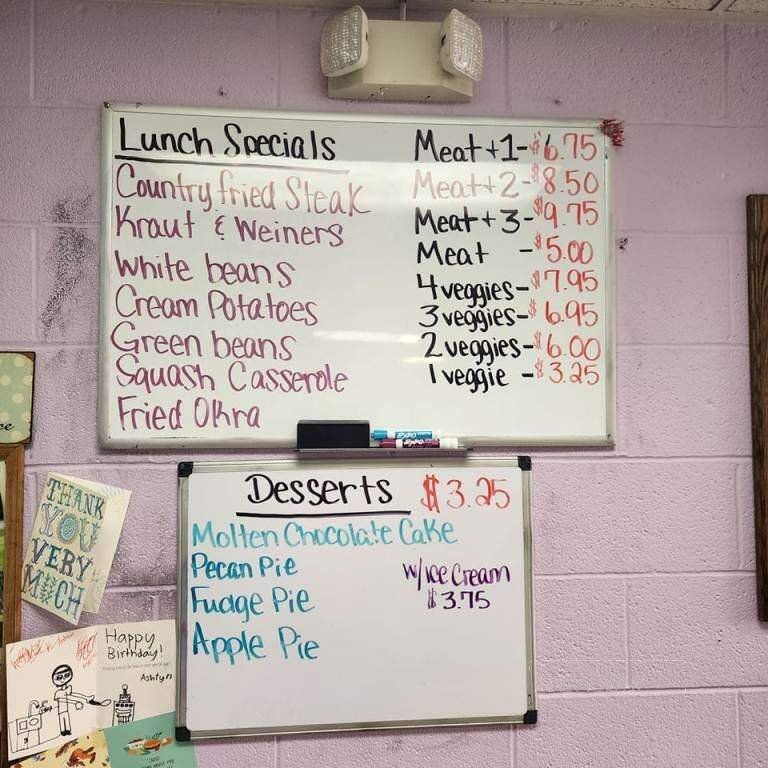 Lunch Specials
Country fried Steak
Kraut & Weiners
White beans
Cream Potatoes
Green beans
Squash Casserole
Fried Okra
Meat +1- $6.75
Meat+2- $8.50
Meat+3- $9.75
Meat - $5.00
4 veggies- $7.95
3 veggies- $6.95
2 veggies- $6.00
1 veggie - $3.25
EXPO
EXPO
Desserts $3.25
Molten Chocolate Cake
Pecan Pie
Fudge Pie
Apple Pie
w/ice Cream
$3.75
THANK
YOU
VERY
MUCH
Happy
Birthday!
Ashtyn